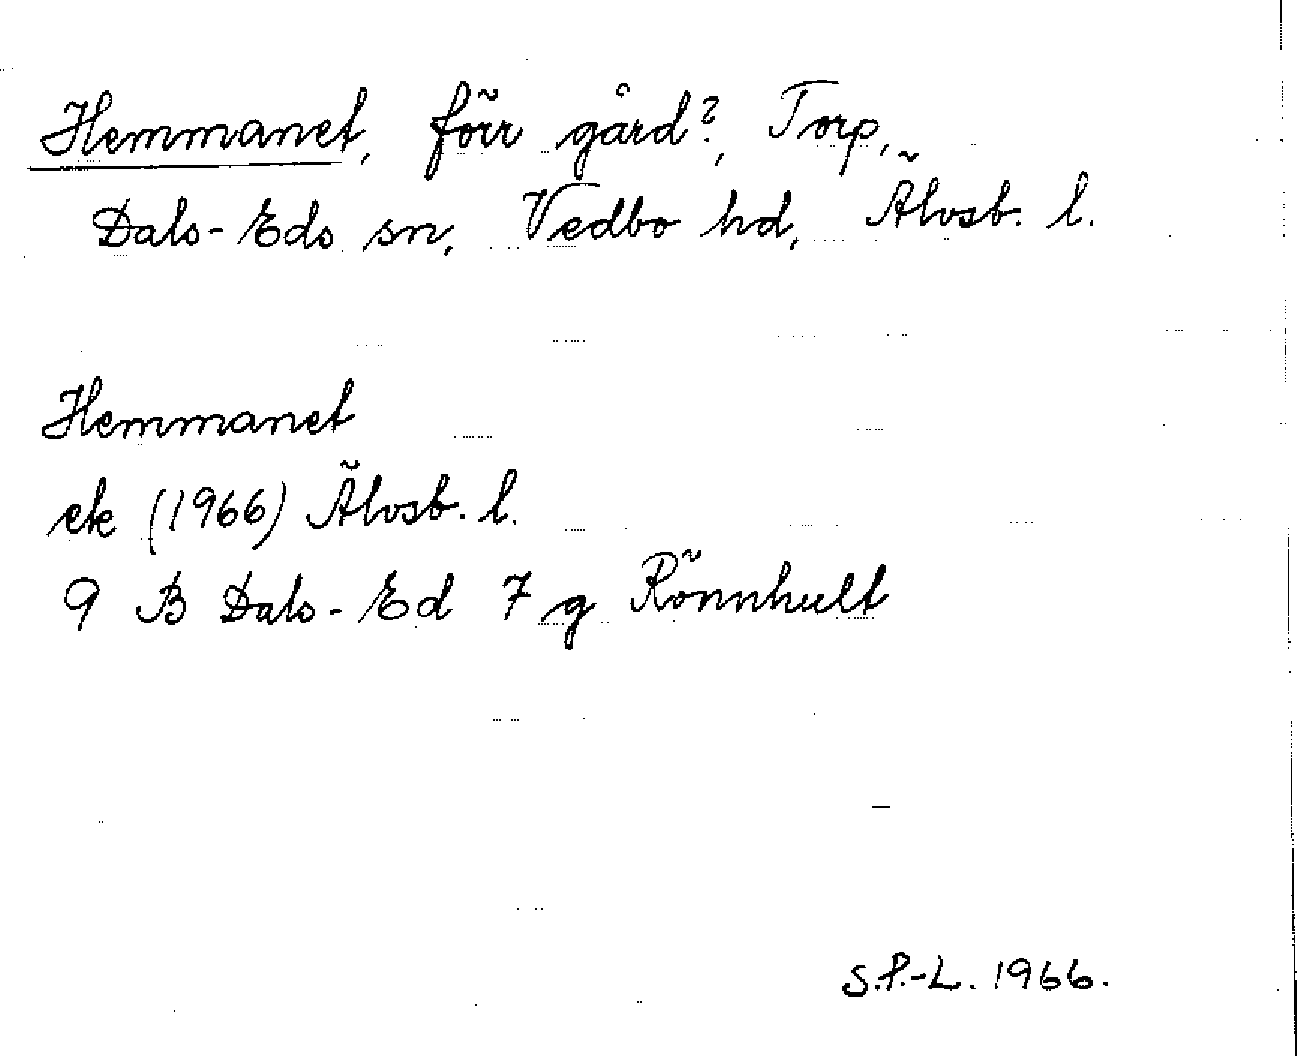 Hemmanet, förr gård?, Torp,
Dals-Eds sn, Vedbo hd, Älvsb. l.
Hemmanet
ek (1966) Älvsb. l.
9 B Dals-Ed 7 g Rönnhult
S.P.-L. 1966.